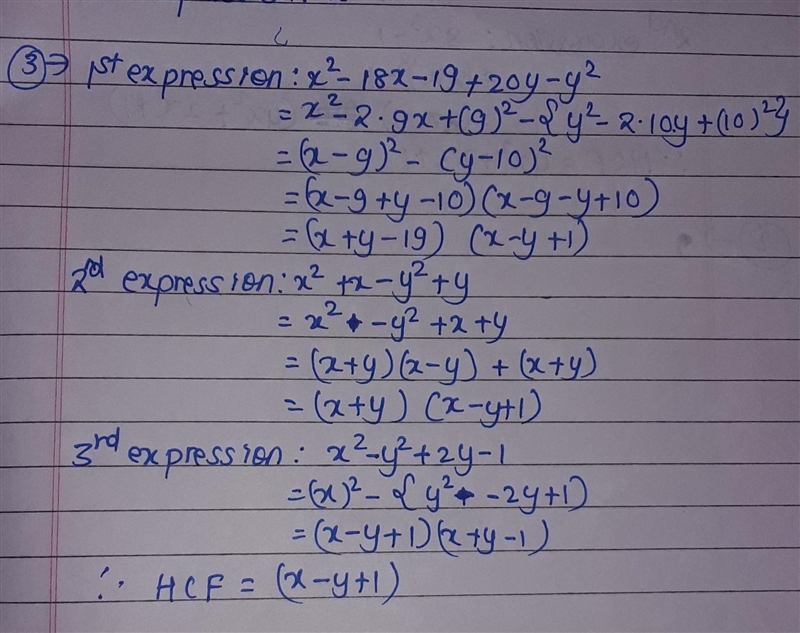 ③⇒ 1st expression: x² - 18x - 19 + 20y - y²
= x² - 2·9x + (9)² - {y² - 2·10y + (10)²}
= (x - 9)² - (y - 10)²
= (x - 9 + y - 10) (x - 9 - y + 10)
= (x + y - 19) (x - y + 1)
2nd expression: x² + x - y² + y
= x² - y² + x + y
= (x + y) (x - y) + (x + y)
= (x + y) (x - y + 1)
3rd expression: x² - y² + 2y - 1
= (x)² - {y² - 2y + 1)
= (x - y + 1) (x + y - 1)
∴ HCF = (x - y + 1)